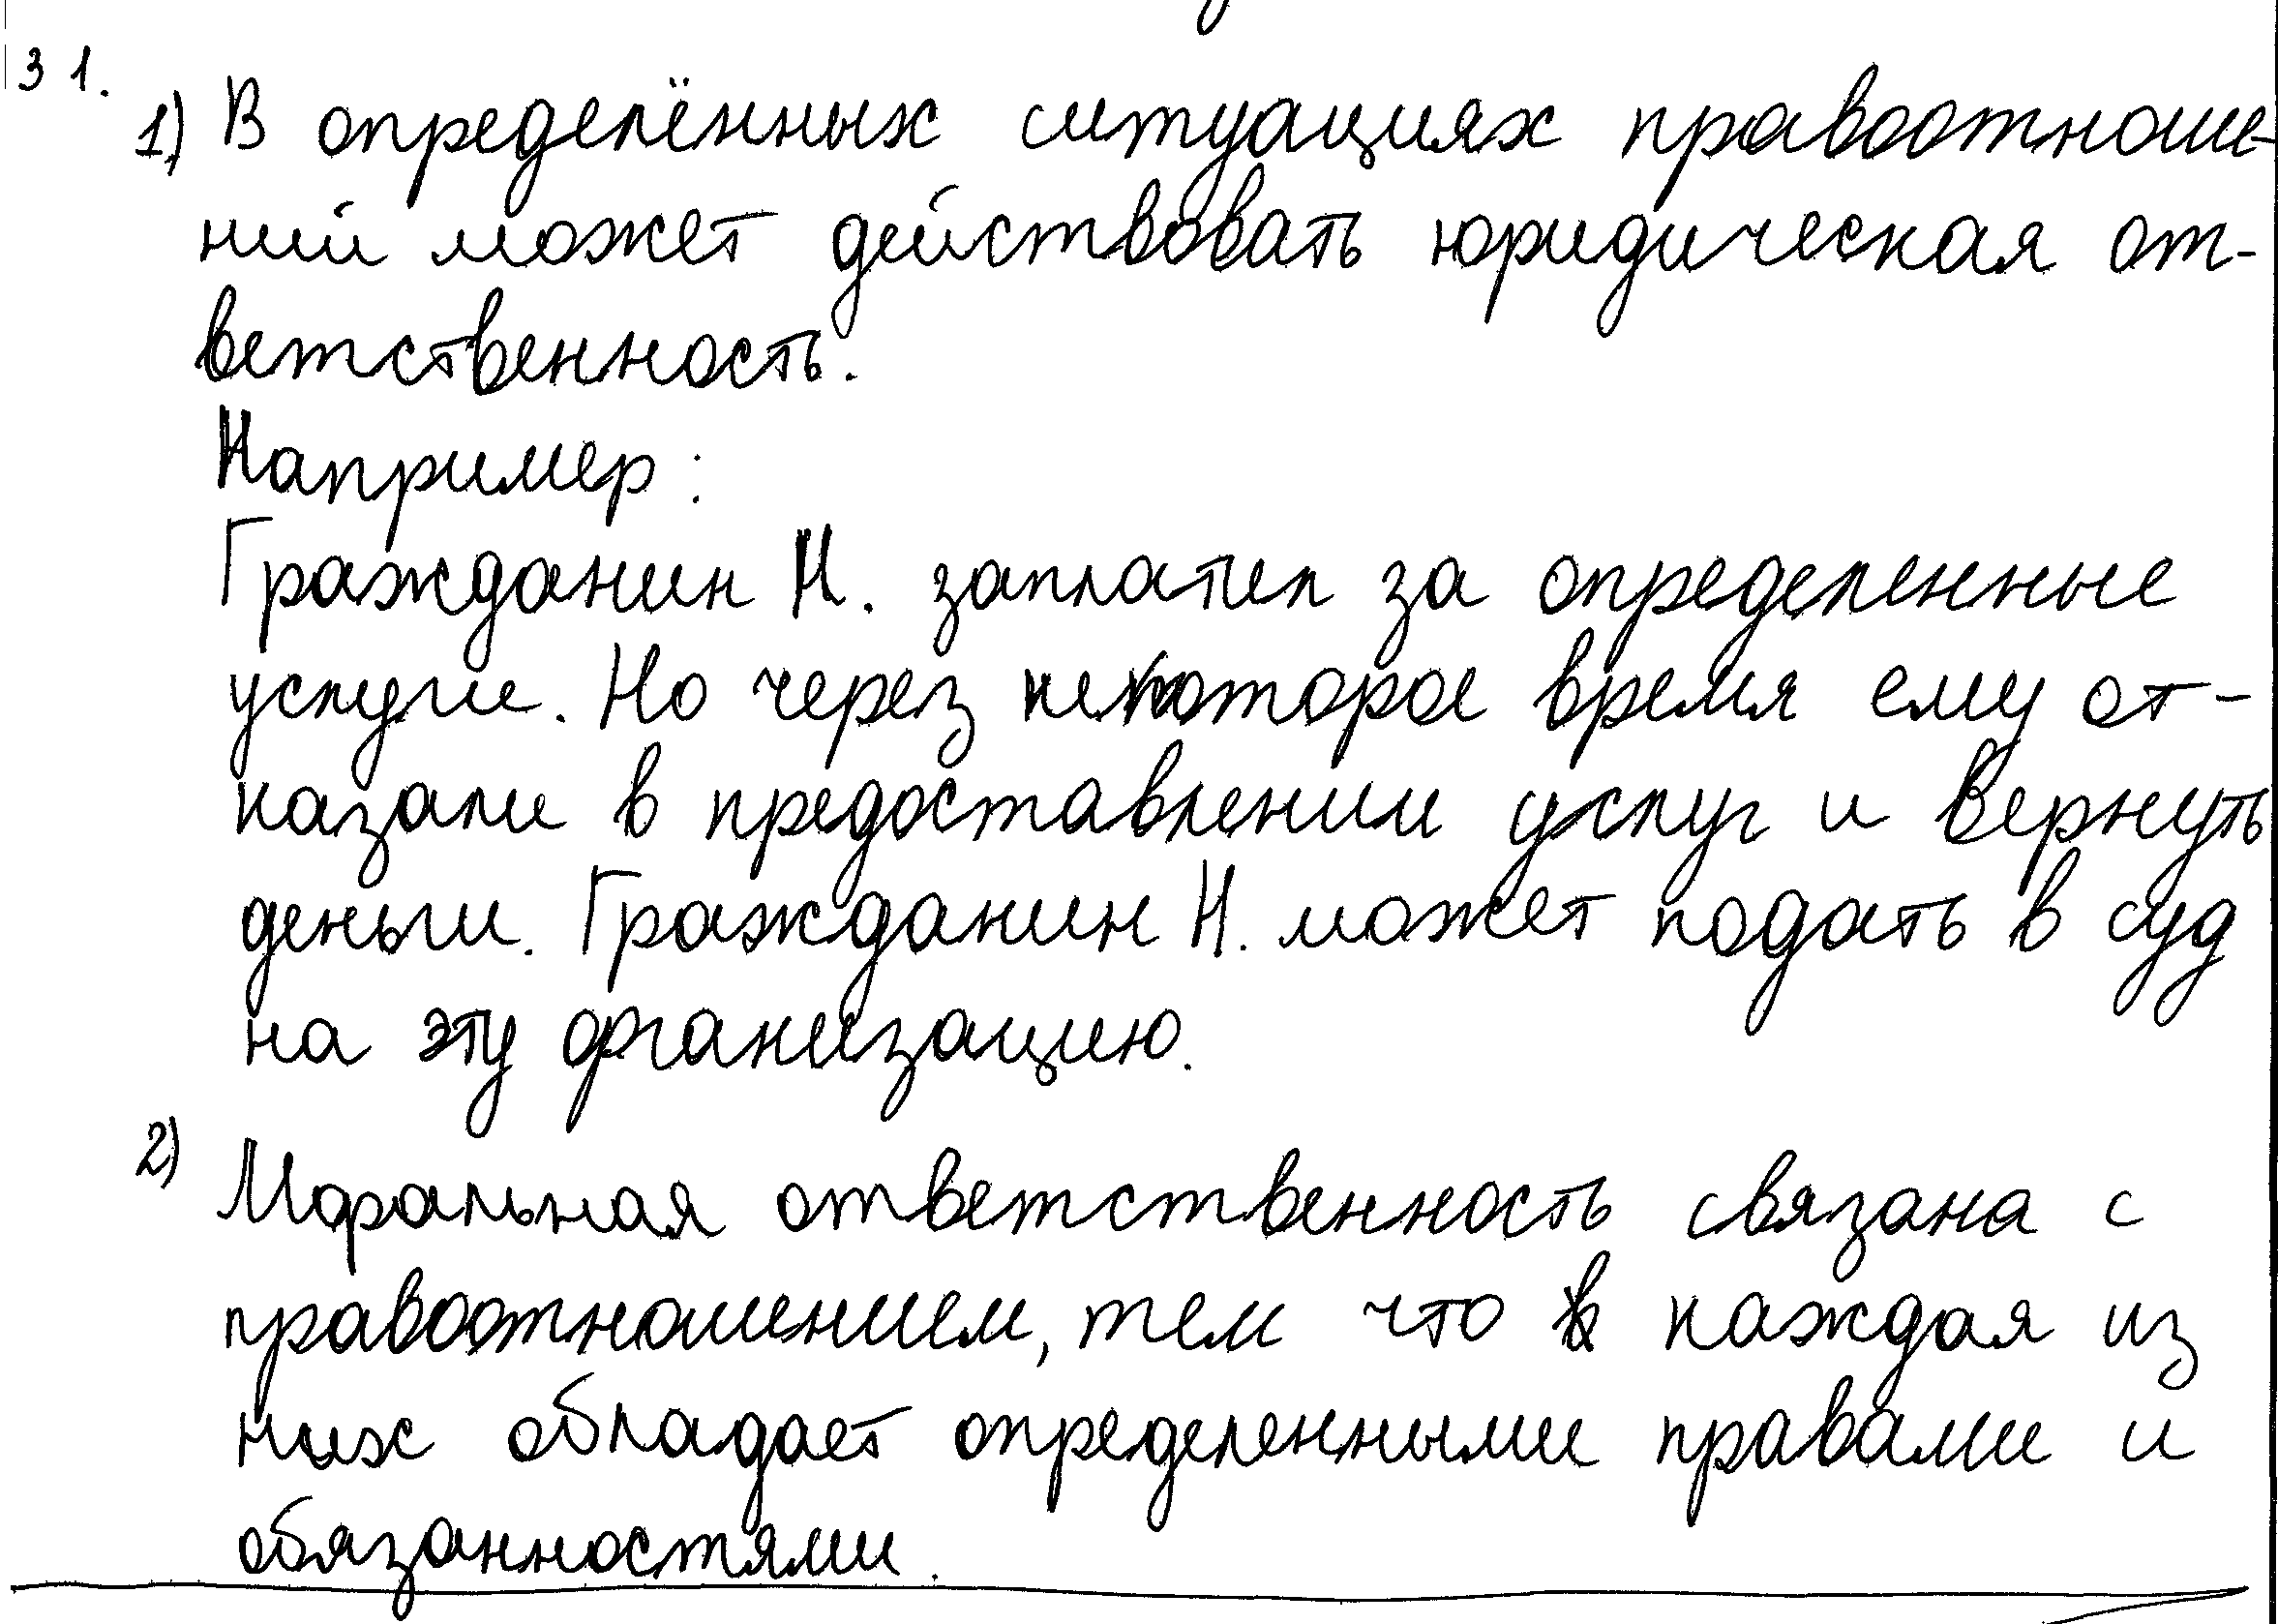 31.
1) В определённых ситуациях правоотноше-
ний может действовать юридическая от-
ветственность.
Например:
Гражданин Н. заплатил за определенные
услуги. Но через некоторое время ему от-
казали в предоставлении услуг и вернуть
деньги. Гражданин Н. может подать в суд
на эту организацию.
2) Моральная ответственность связана с
правоотношением, тем что каждая из
них обладает определенными правами и
обязанностями.